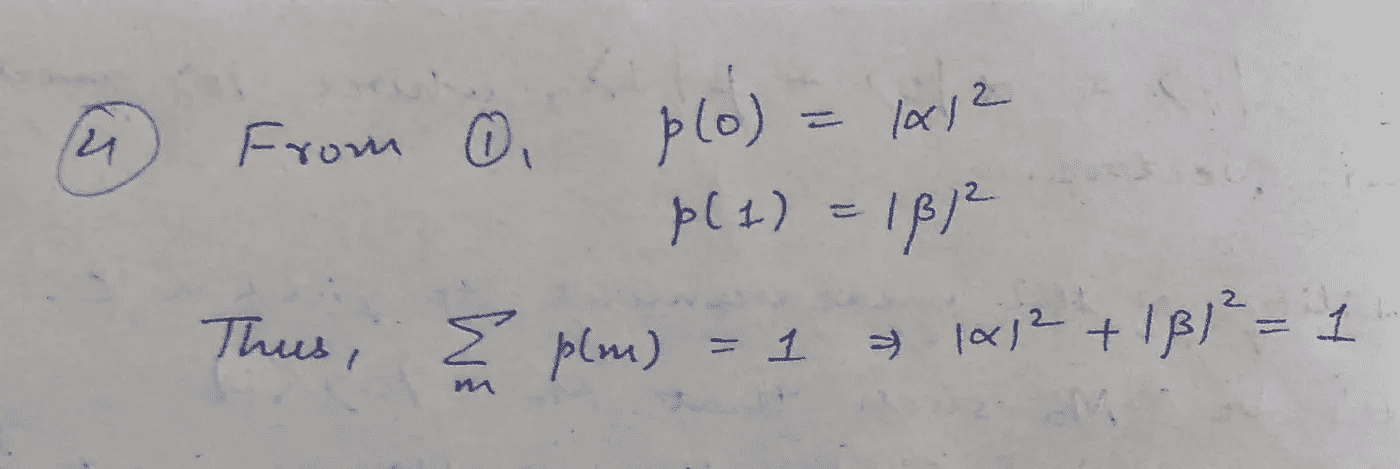 ④ From ①, p(0) = |α|²
p(1) = |β|²
Thus, Σ p(m) = 1 ⇒ |α|² + |β|² = 1
m